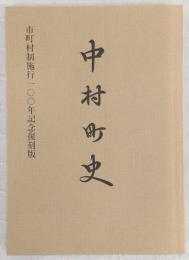 中村町史
市町村制施行一〇〇年記念復刻版